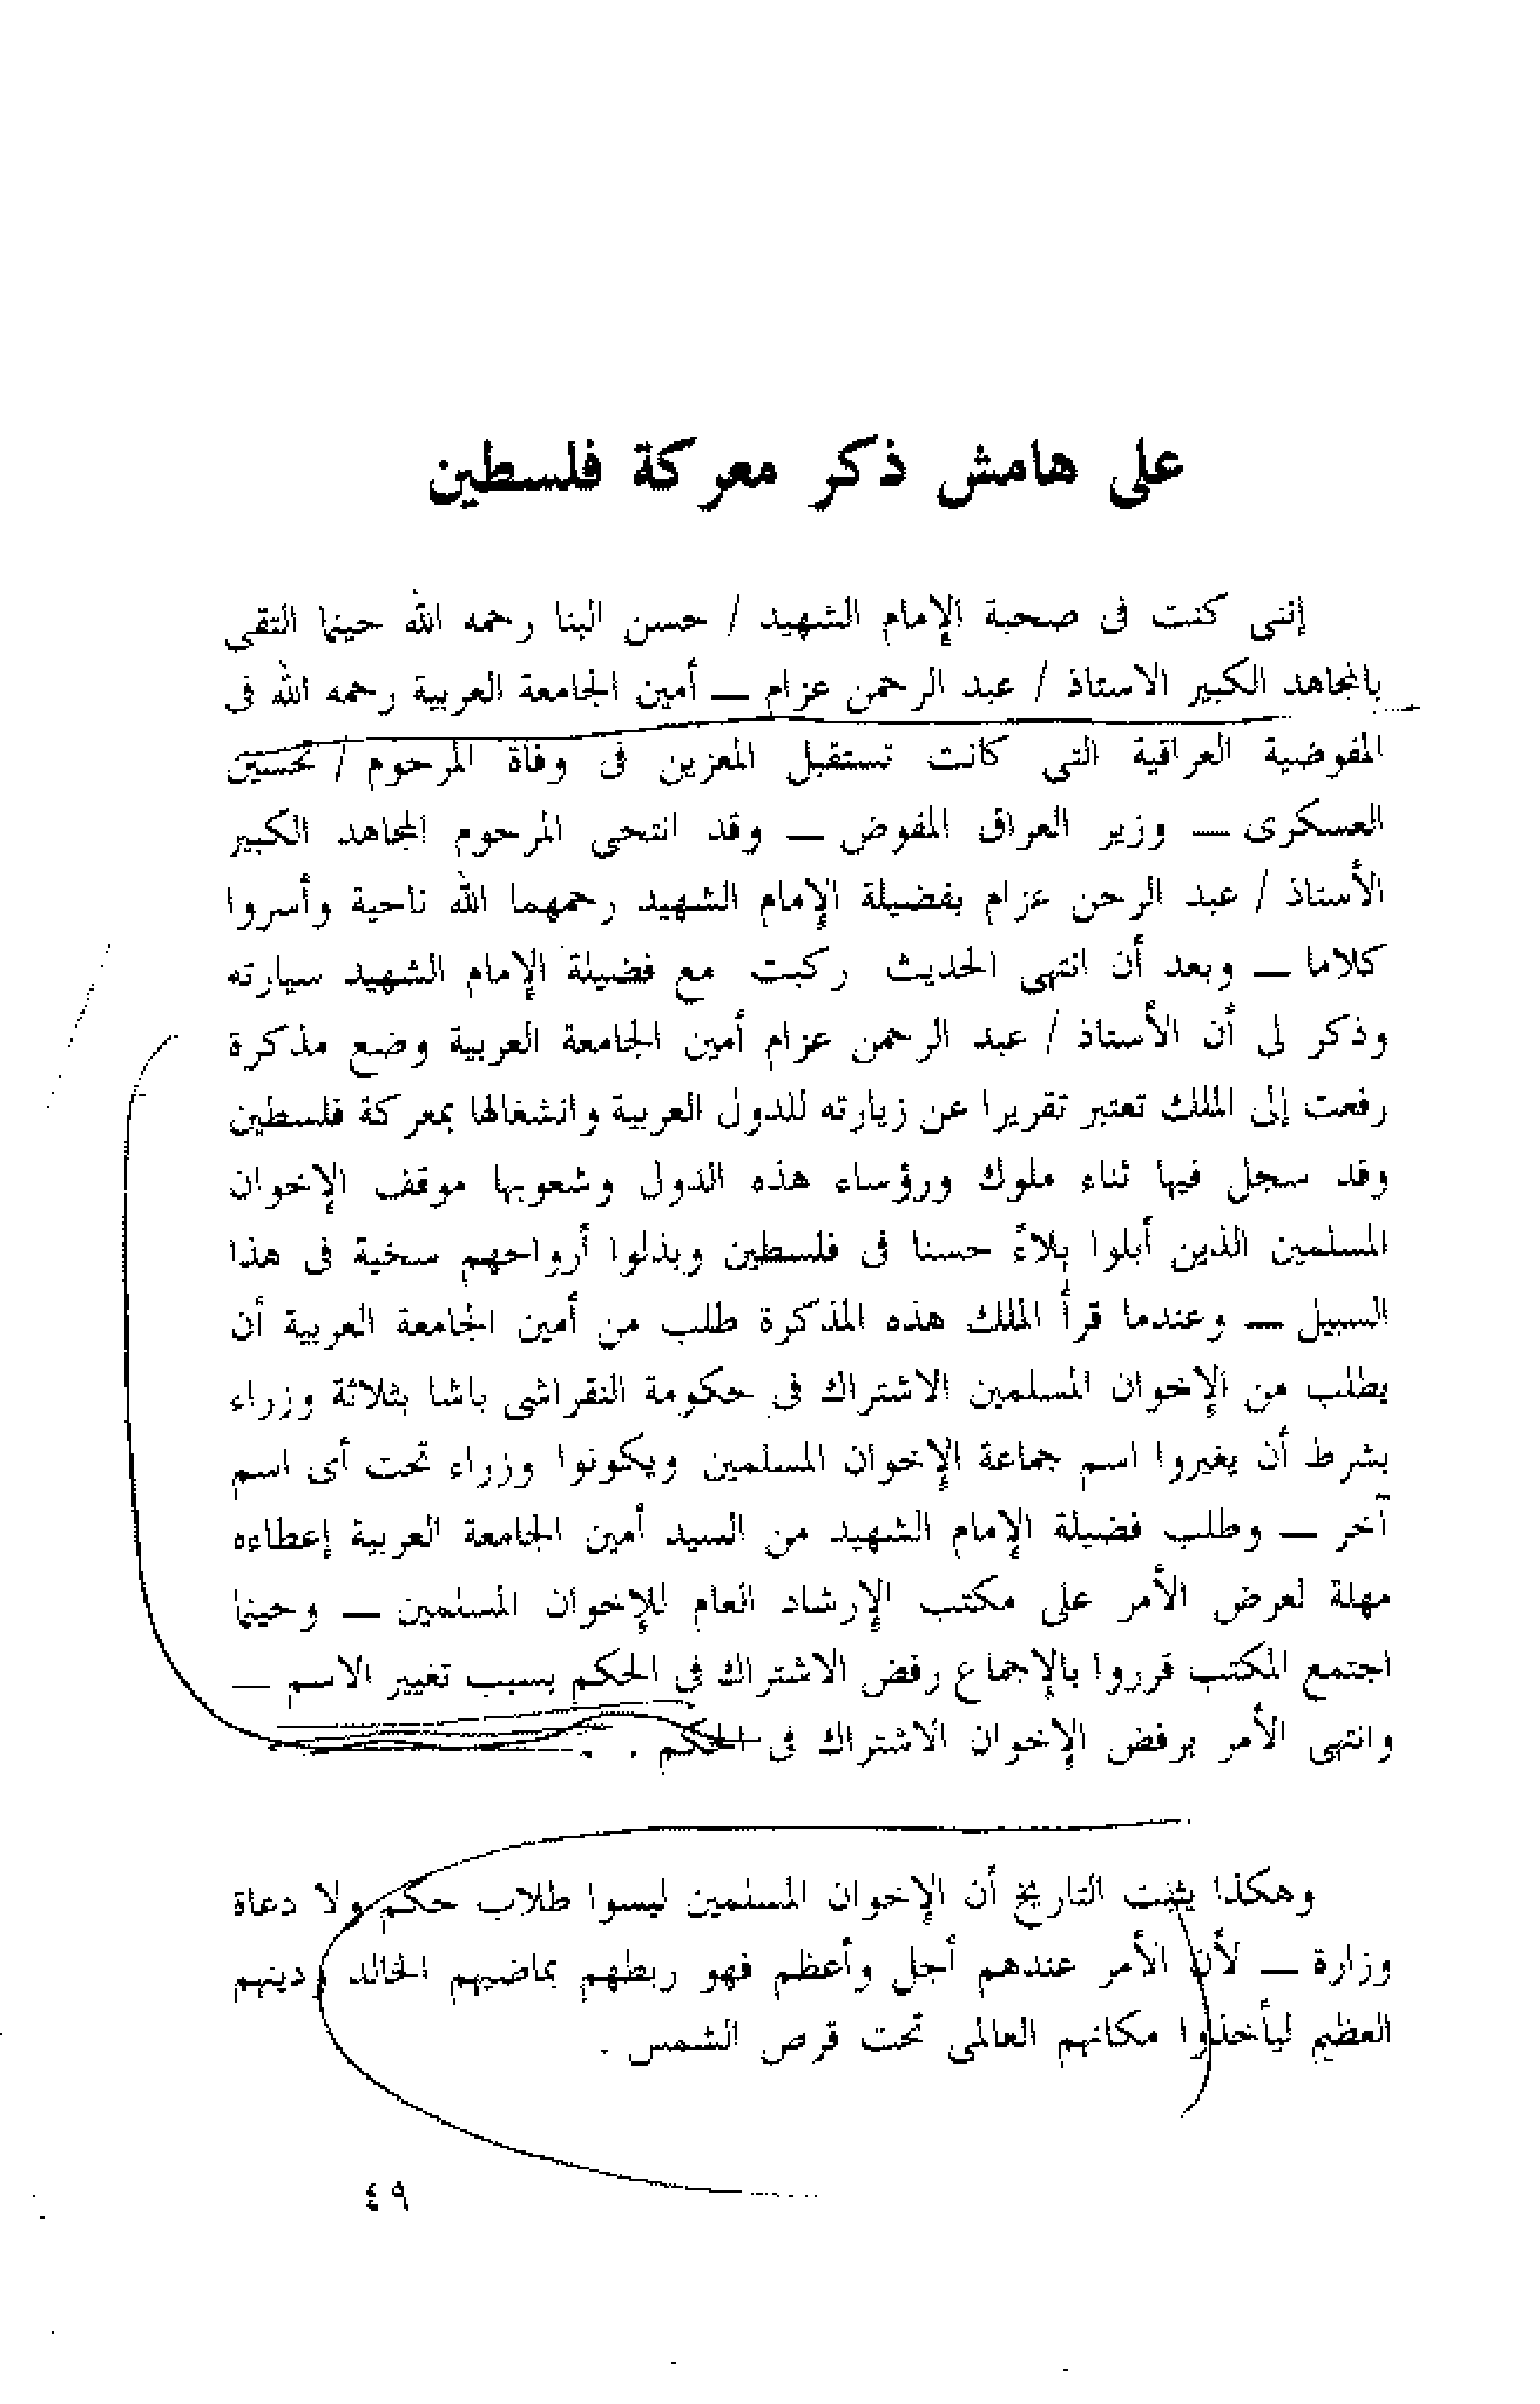 على هامش ذكر معركة فلسطين
إننى كنت فى صحبة الإمام الشهيد / حسن البنا رحمه الله حينما التقى
بالمجاهد الكبير الاستاذ / عبد الرحمن عزام — أمين الجامعة العربية رحمه الله فى
المفوضية العراقية التى كانت تستقبل المعزين فى وفاة المرحوم / تحسين
العسكرى — وزير العراق المفوض — وقد انتحى المرحوم المجاهد الكبير
الأستاذ / عبد الرحمن عزام بفضيلة الإمام الشهيد رحمهما الله ناحية وأسروا
كلاما — وبعد أن انتهى الحديث ركبت مع فضيلة الإمام الشهيد سيارته
وذكر لى أن الأستاذ / عبد الرحمن عزام أمين الجامعة العربية وضع مذكرة
رفعت إلى الملك تعتبر تقريرا عن زيارته للدول العربية وانشغالها بمعركة فلسطين
وقد سجل فيها ثناء ملوك ورؤساء هذه الدول وشعوبها موقف الإخوان
المسلمين الذين أبلوا بلاءً حسنا فى فلسطين وبذلوا أرواحهم سخية فى هذا
السبيل — وعندما قرأ الملك هذه المذكرة طلب من أمين الجامعة العربية أن
يطلب من الإخوان المسلمين الاشتراك فى حكومة النقراشى باشا بثلاثة وزراء
بشرط أن يغيروا اسم جماعة الإخوان المسلمين ويكونوا وزراء تحت أى اسم
آخر — وطلب فضيلة الإمام الشهيد من السيد أمين الجامعة العربية إعطاءه
مهلة لعرض الأمر على مكتب الإرشاد العام للإخوان المسلمين — وحينما
اجتمع المكتب قرروا بالإجماع رفض الاشتراك فى الحكم بسبب تغيير الاسم —
وانتهى الأمر برفض الإخوان الاشتراك فى الحكم . .
وهكذا يثبت التاريخ أن الإخوان المسلمين ليسوا طلاب حكم ولا دعاة
وزارة — لأن الأمر عندهم أجل وأعظم فهو ربطهم بماضيهم الخالد ودينهم
العظيم ليأخذوا مكانهم العالمى تحت قرص الشمس .
٤٩